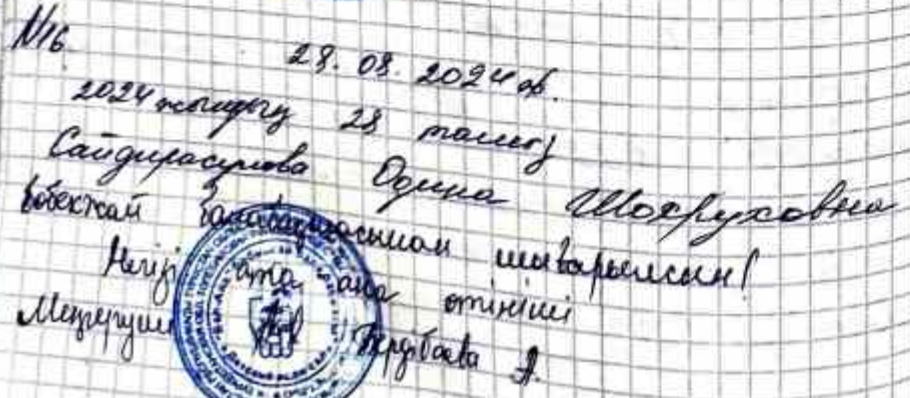 №16
28.08.2024 ж.
2024 жылдың 28 тамыз
Сайдирасулова Одина Шохруховна
бөбекжай балабақшасынан шығарылсын!
Негізі ата ана өтініші
Меңгеруші Бердібаева А.